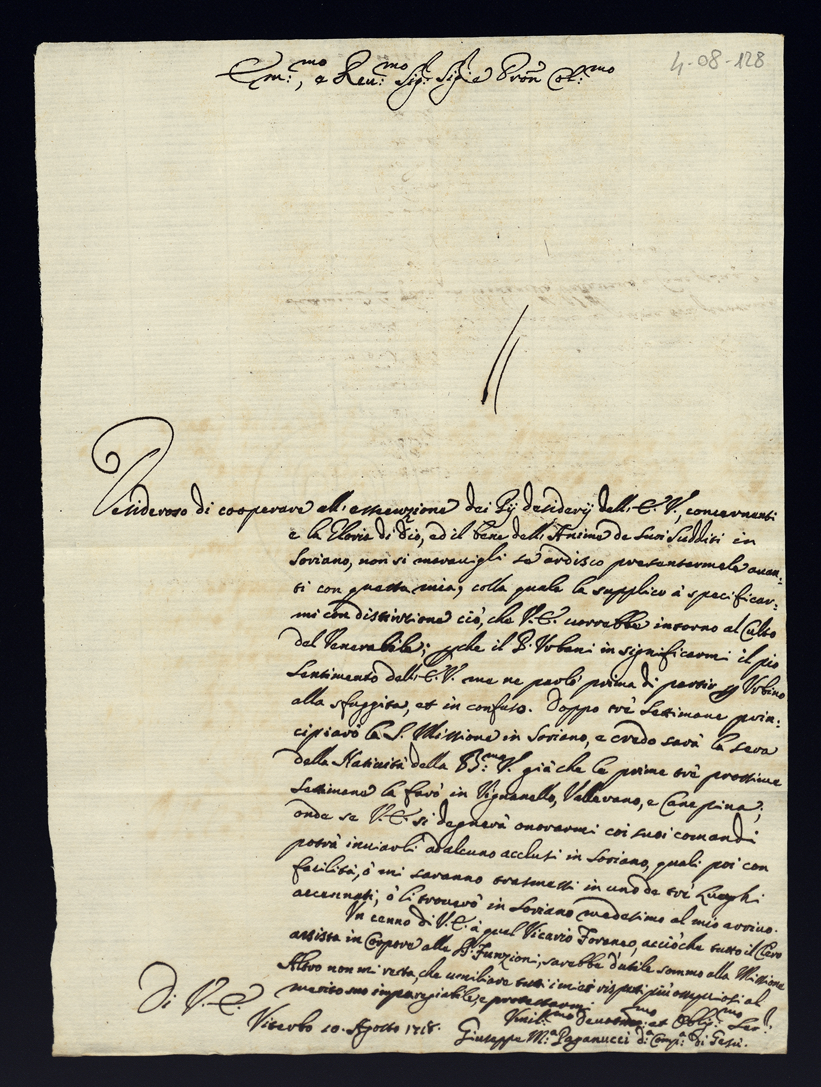 4-08-128
Em:mo, e Reu:mo Sig: Sig:e Pron Col:mo
Desideroso di cooperare all'essecuzione dei Pij desiderij dell'E.V., concernenti
e la Gloria di Dio, ed il bene dell'Anime de Suoi Sudditi in
Soriano, non si meravigli se ardisco presentarmele auan-
ti con questa mia, colla quale la supplico à specificar-
mi con distinzione ciò, che V.E. uorrebbe intorno al Culto
del Venerabile; che il P. Urbani in significarmi il pio
Sentimento dell'E.V. me ne parlò prima di partir Urbino
alla sfuggita, et in confuso. Doppo trè Settimane prin-
cipiarò la S. Missione in Soriano, e credo sarà la sera
della Natiuità della B:ma V. già che le prime trè prossime
Settimane la farò in Vignanello, Vallerano, e Canepina;
onde se V.E. si degnerà onorarmi coi suoi comandi
potrà inuiarli ad alcuno acclusi in Soriano, quali poi con
facilità, ò mi saranno trasmessi in uno de trè Luoghi
accennati, ò li trouerò in Soriano medesimo al mio arriuo.
Un cenno di V.E. à quel Vicario Foraneo, acciò che tutto il Clero
assista in Corpore alle Funzioni, sarebbe d'utile sommo alla Missione
Altro non mi resta, che umiliare tutti i miei rispetti più ossequiosi al
merito suo impareggiabile, e protestarmi
Di V.E.
Viterbo 10. Agosto 1718.
Umil:mo Deuotis:mo et Oblig:mo Ser:
Giuseppe M:a Paganucci d:a Comp:a di Gesù.